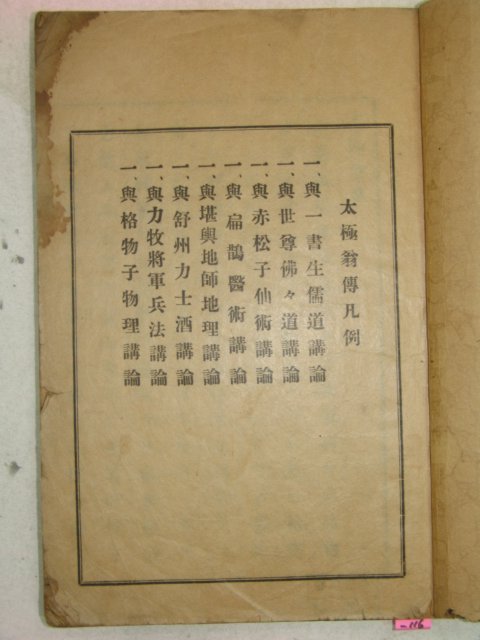 太極翁傳凡例
一、與一書生儒道講論
一、與世尊佛々道講論
一、與赤松子仙術講論
一、與扁鵲醫術講論
一、與堪輿地師地理講論
一、與舒州力士酒講論
一、與力牧將軍兵法講論
一、與格物子物理講論
116